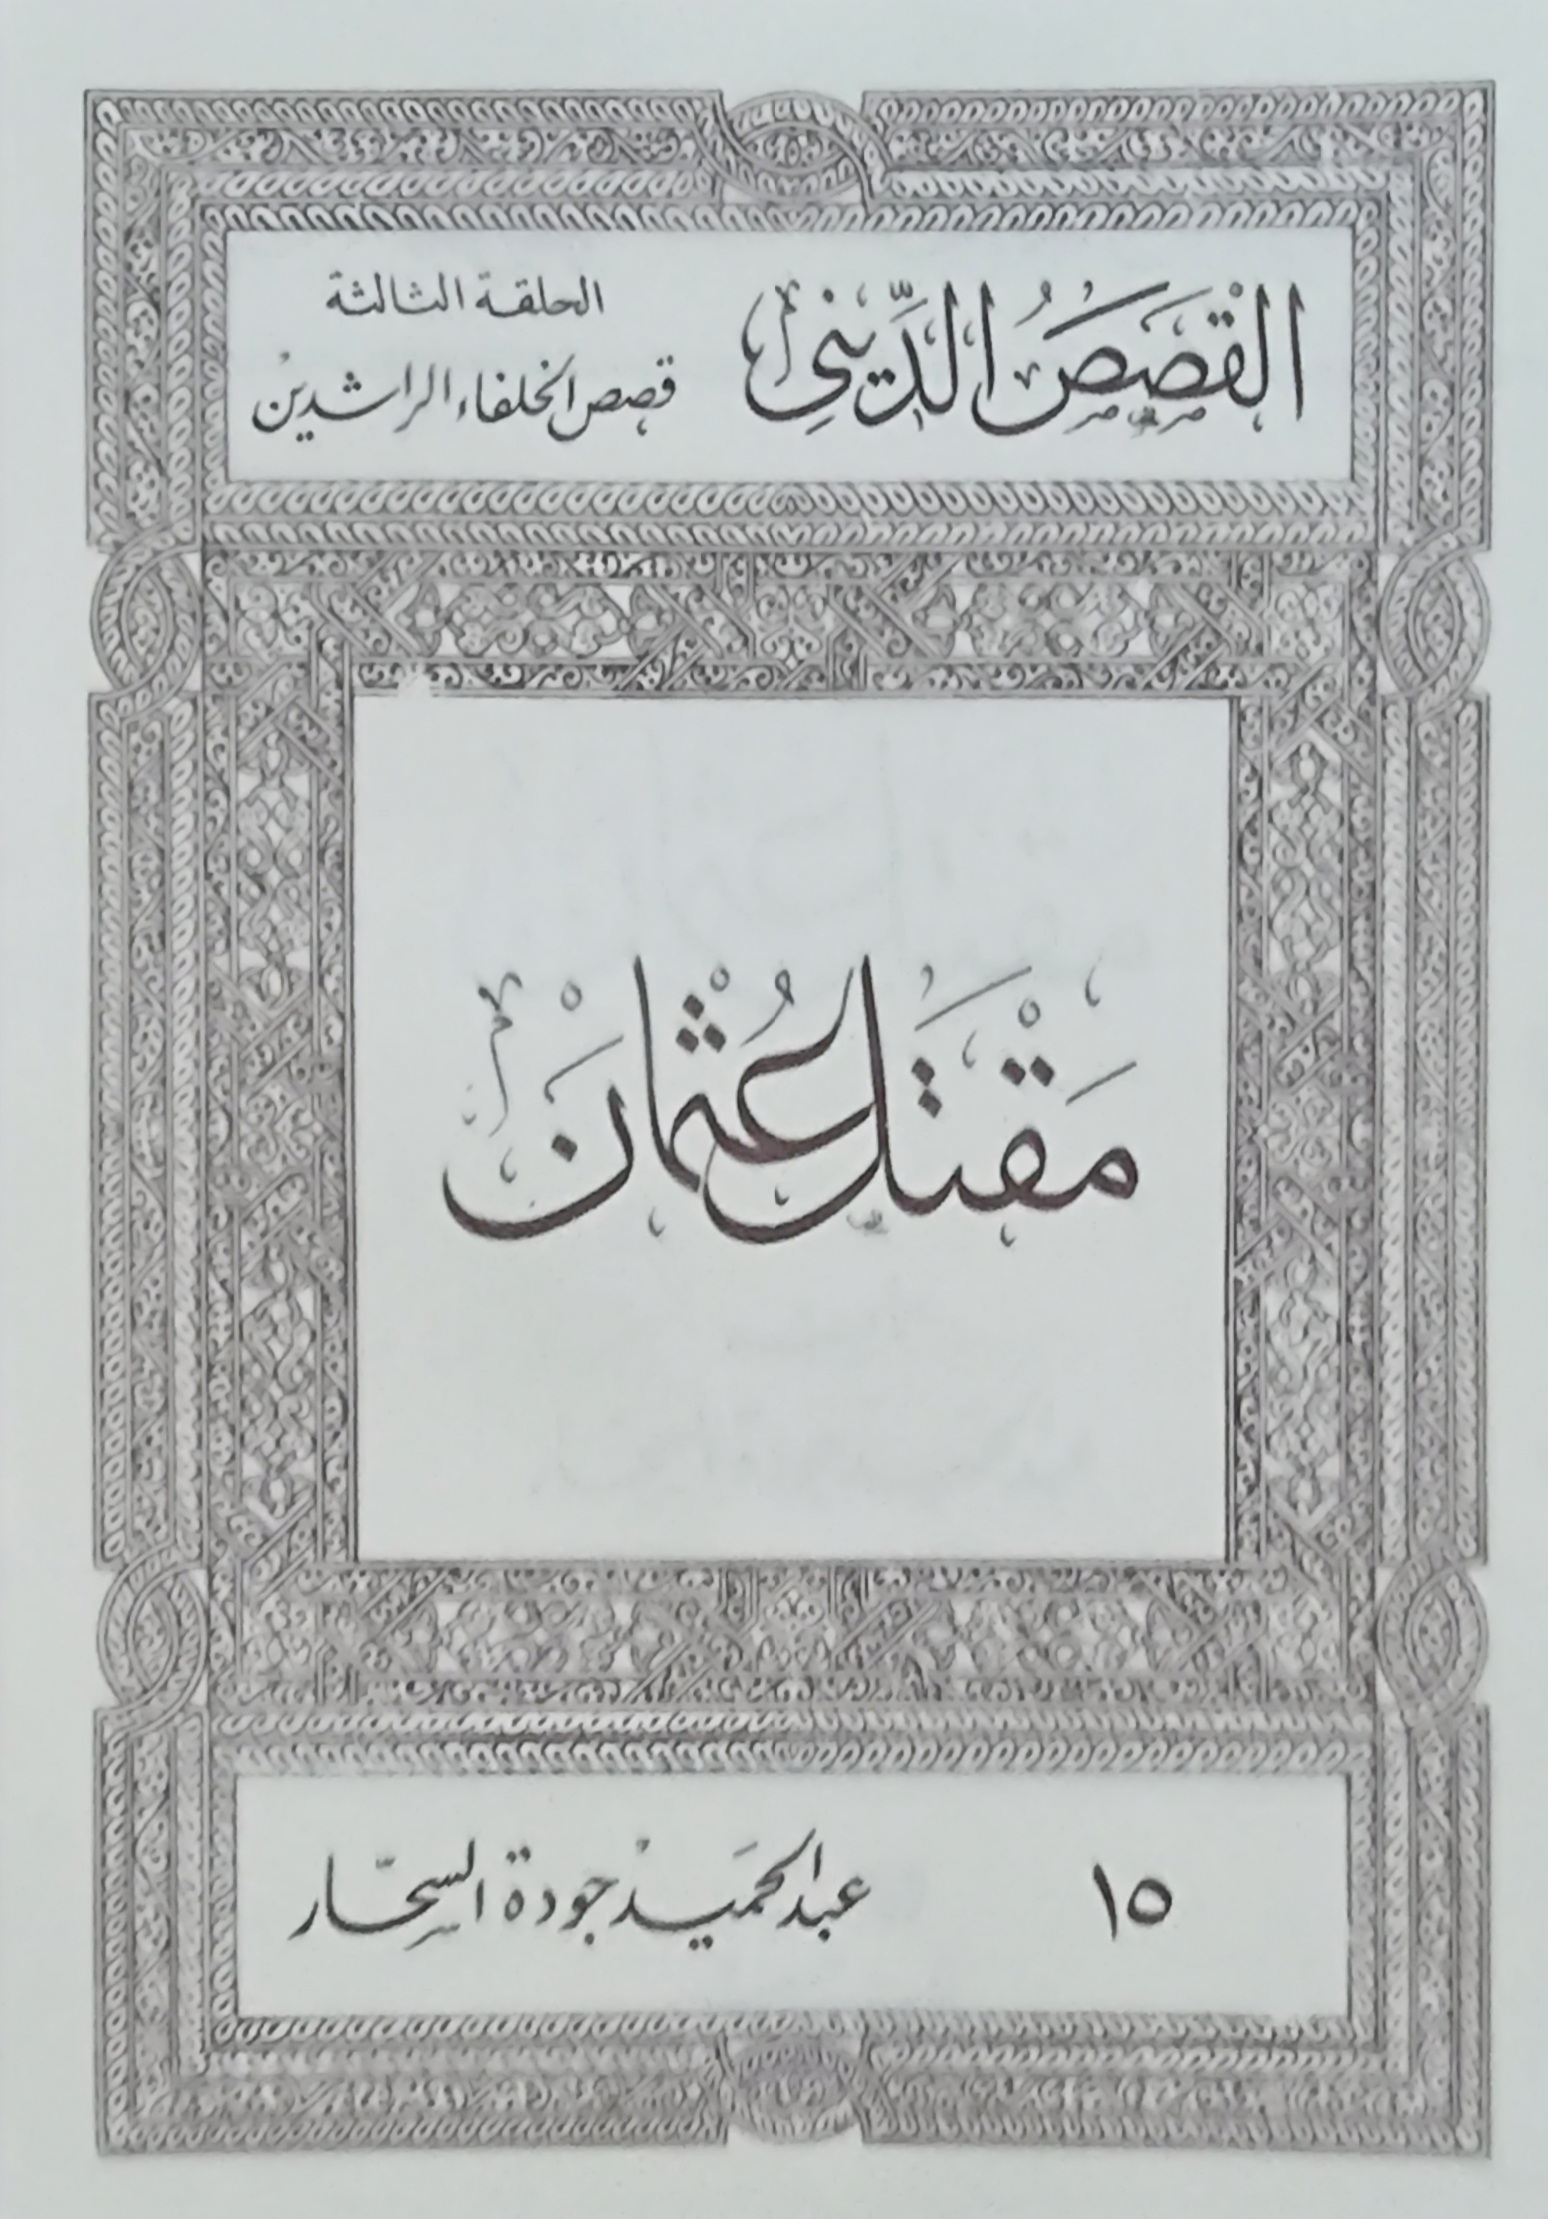 القَصَصُ الدِّينِي
الحلقة الثالثة
قصص الخلفاء الراشدين
مَقْتَل عُثْمَانَ
١٥
عبد الحميد جودة السحّار